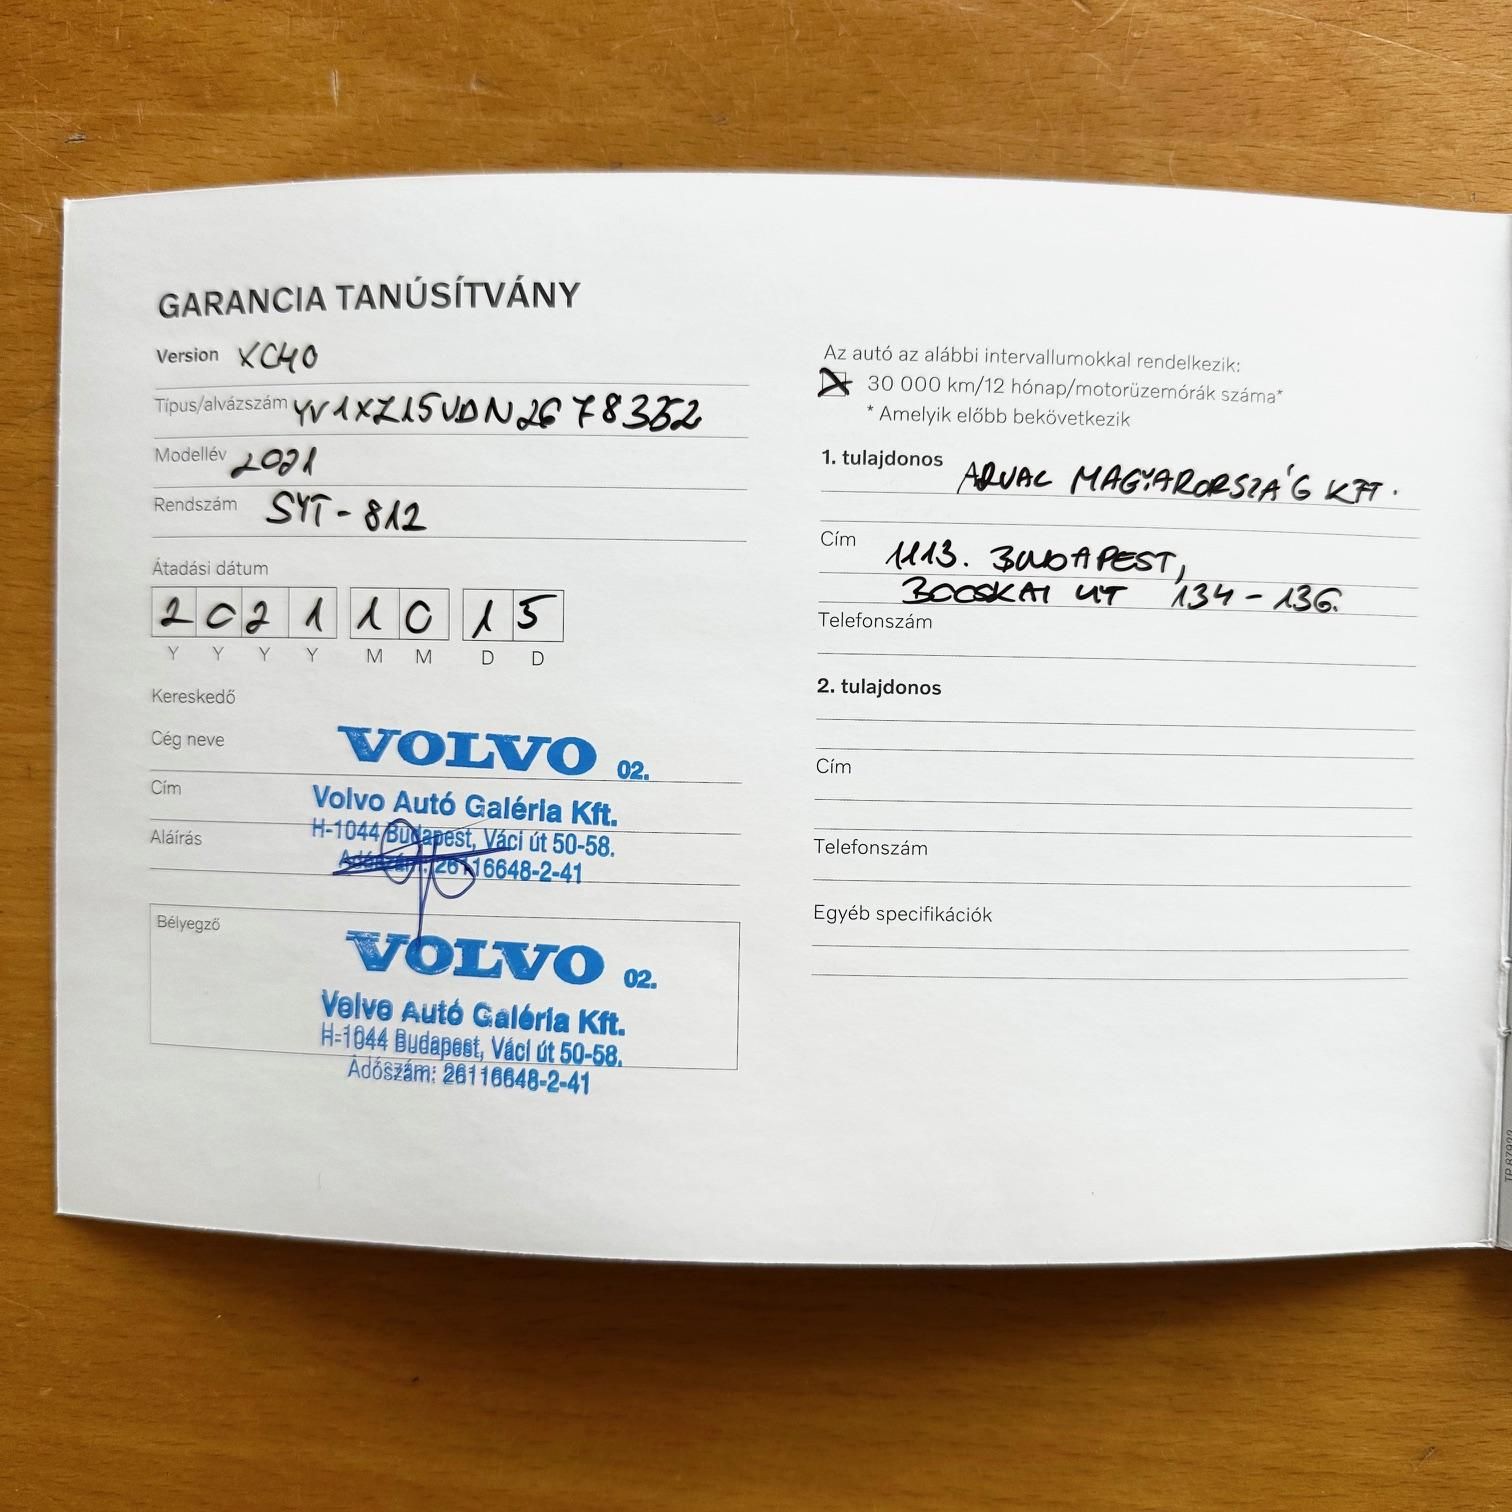 GARANCIA TANÚSÍTVÁNY
Version XC40
Típus/alvázszám YV1XZ15VDN2678352
Modellév 2021
Rendszám SYT-812
Átadási dátum
2021 10 15
Y Y Y Y M M D D
Kereskedő
Cég neve
VOLVO 02.
Cím
Volvo Autó Galéria Kft.
H-1044 Budapest, Váci út 50-58.
Aláírás
Adószám: 26116648-2-41
Bélyegző
VOLVO 02.
Volvo Autó Galéria Kft.
H-1044 Budapest, Váci út 50-58.
Adószám: 26116648-2-41
Az autó az alábbi intervallumokkal rendelkezik:
30 000 km/12 hónap/motorüzemórák száma*
* Amelyik előbb bekövetkezik
1. tulajdonos ARVAL MAGYARORSZÁG KFT.
Cím 1113. BUDAPEST,
BOCSKAI UT 134-136.
Telefonszám
2. tulajdonos
Cím
Telefonszám
Egyéb specifikációk